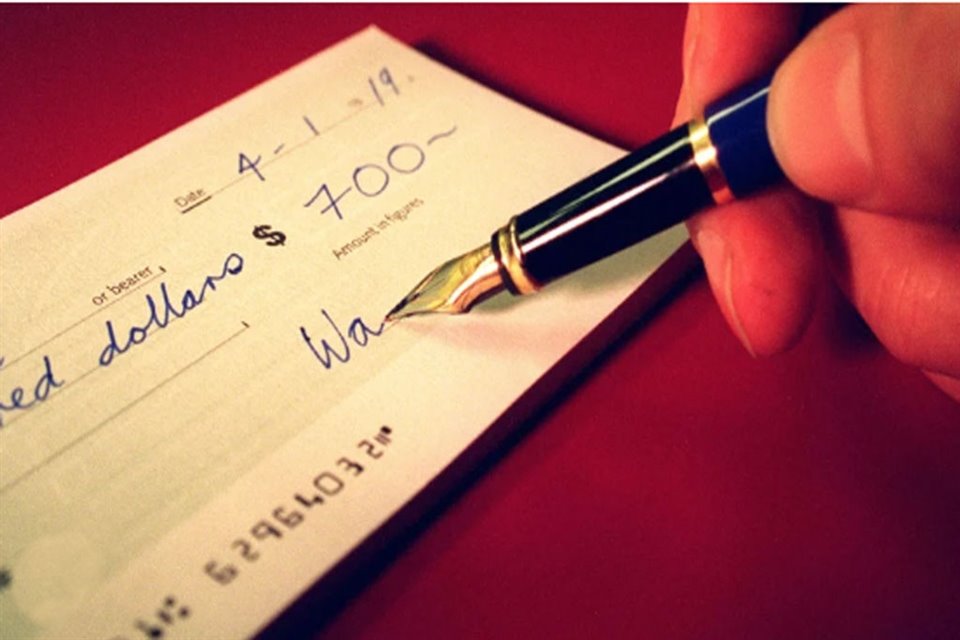 Date 4-1-19.
$ 700~
Amount in figures
or bearer
dollars
Wa
6296403211"